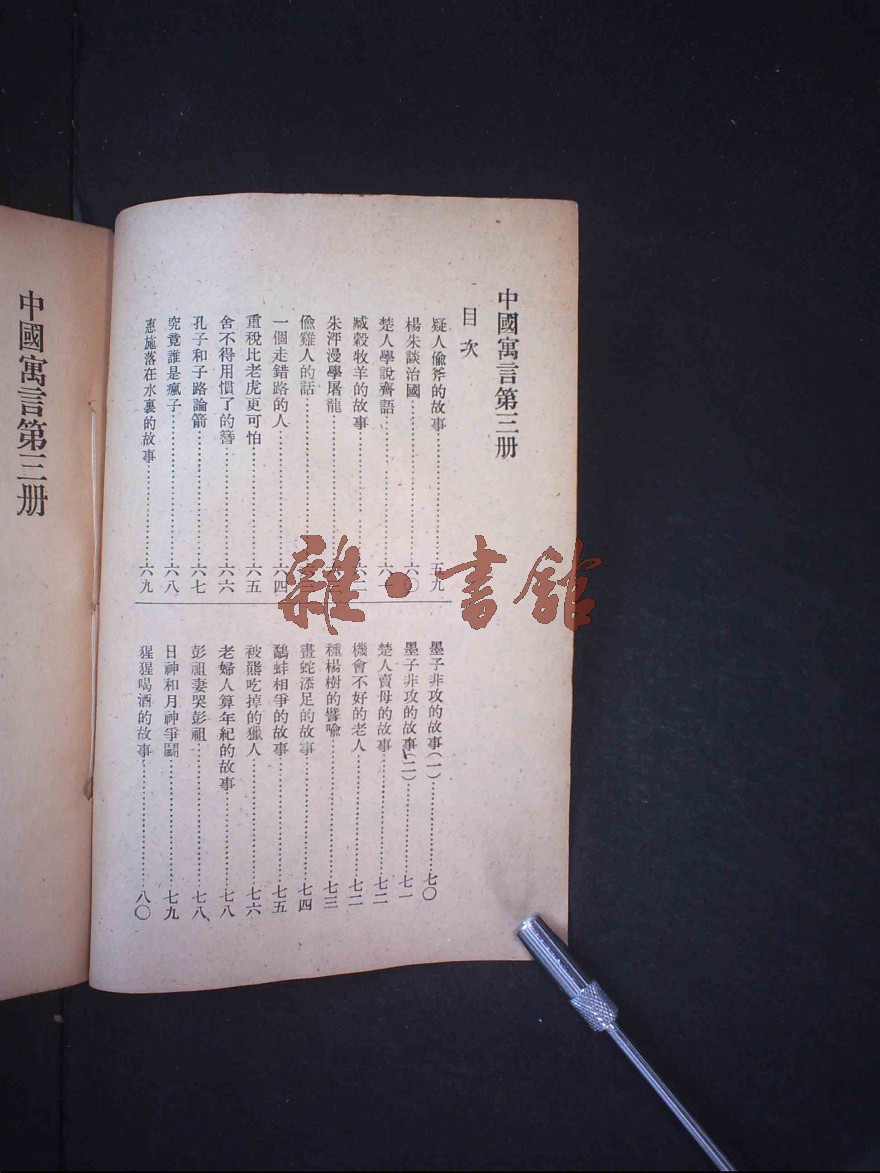 中國寓言第三册
目次
疑人偷斧的故事…………五九
楊朱談治國…………六〇
楚人學說齊語…………六一
臧穀牧羊的故事…………六二
朱泙漫學屠龍…………
偷雞人的話…………
一個走錯路的人…………六四
重稅比老虎更可怕…………六五
舍不得用慣了的簪…………六六
孔子和子路論箭…………六七
究竟誰是瘋子…………六八
惠施落在水裏的故事…………六九
墨子非攻的故事(一)…………七〇
墨子非攻的故事(二)…………七一
楚人賣母的故事…………七二
機會不好的老人…………七二
種楊樹的譬喩…………七三
畫蛇添足的故事…………七四
鷸蚌相爭的故事…………七五
被熊吃掉的獵人…………七六
老婦人算年紀的故事…………七八
彭祖妻哭彭祖…………七八
日神和月神爭鬪…………七九
猩猩喝酒的故事…………八〇
中國寓言第三册
雜·書館